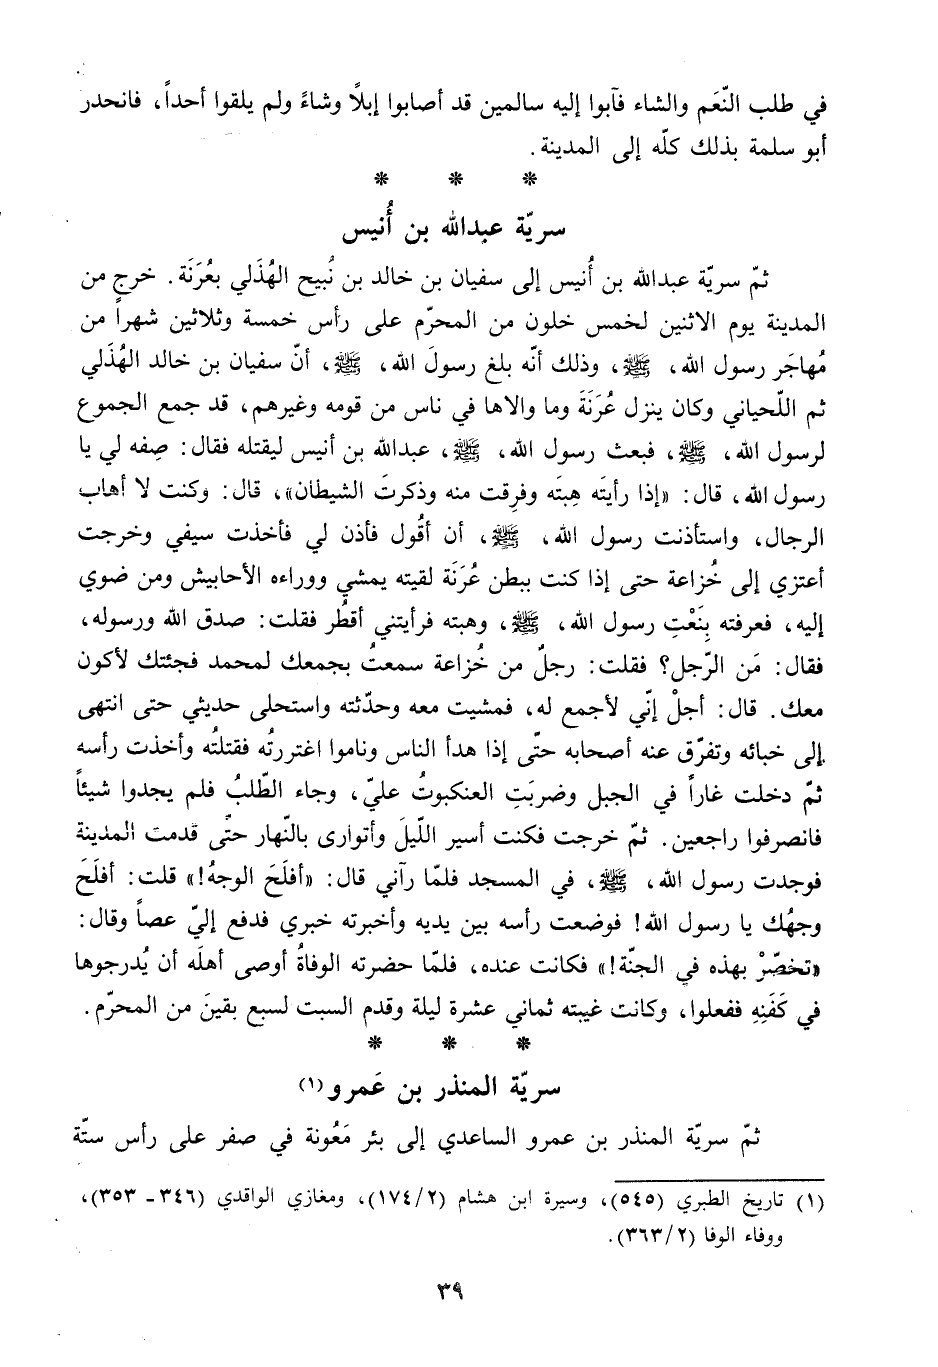 في طلب النّعَم والشاء فآبوا إليه سالمين قد أصابوا إبلاً وشاءً ولم يلقوا أحداً، فانحدر
أبو سلمة بذلك كلّه إلى المدينة.
* * *
سريّة عبدالله بن أُنيس
ثمّ سريّة عبدالله بن أُنيس إلى سفيان بن خالد بن نُبيح الهُذَلي بعُرَنَة. خرج من
المدينة يوم الاثنين لخمس خلون من المحرّم على رأس خمسة وثلاثين شهراً من
مُهاجَر رسول الله، ﷺ، وذلك أنّه بلغ رسولَ الله، ﷺ، أنّ سفيان بن خالد الهُذَلي
ثم اللّحياني وكان ينزل عُرَنَةَ وما والاها في ناس من قومه وغيرهم، قد جمع الجموع
لرسول الله، ﷺ، فبعث رسول الله، ﷺ، عبدالله بن أنيس ليقتله فقال: صِفه لي يا
رسول الله، قال: «إذا رأيتَه هِبتَه وفرِقت منه وذكرتَ الشيطان»، قال: وكنت لا أهاب
الرجال، واستأذنت رسول الله، ﷺ، أن أقُول فأذن لي فأخذت سيفي وخرجت
أعتزي إلى خُزاعة حتى إذا كنت ببطن عُرَنَة لقيته يمشي ووراءه الأحابيش ومن ضوي
إليه، فعرفته بِنَعْتِ رسول الله، ﷺ، وهبته فرأيتني أقطُر فقلت: صدق الله ورسوله،
فقال: مَن الرّجل؟ فقلت: رجلٌ من خُزاعة سمعتُ بجمعك لمحمد فجئتك لأكون
معك. قال: أجلْ إنّي لأجمع له، فمشيت معه وحدّثته واستحلى حديثي حتى انتهى
إلى خبائه وتفرّق عنه أصحابه حتّى إذا هدأ الناس وناموا اغتررتُه فقتلتُه وأخذت رأسه
ثمّ دخلت غاراً في الجبل وضربَتِ العنكبوتُ عليّ، وجاء الطّلبُ فلم يجدوا شيئاً
فانصرفوا راجعين. ثمّ خرجت فكنت أسير اللّيلَ وأتوارى بالنّهار حتّى قدمت المدينة
فوجدت رسول الله، ﷺ، في المسجد فلمّا رآني قال: «أفلَحَ الوجهُ!» قلت: أفلَحَ
وجهُك يا رسول الله! فوضعت رأسه بين يديه وأخبرته خبري فدفع إليّ عصاً وقال:
«تخصّرْ بهذه في الجنّة!» فكانت عنده، فلمّا حضرته الوفاةُ أوصى أهلَه أن يُدرجوها
في كَفَنِهِ ففعلوا، وكانت غيبته ثماني عشرة ليلة وقدم السبت لسبع بقينَ من المحرّم.
* * *
سريّة المنذر بن عَمرو (١)
ثمّ سريّة المنذر بن عمرو الساعدي إلى بئر مَعُونة في صفر على رأس ستّة
(١) تاريخ الطبري (٥٤٥)، وسيرة ابن هشام (١٧٤/٢)، ومغازي الواقدي (٣٤٦ - ٣٥٣)،
ووفاء الوفا (٣٦٣/٢).
٣٩